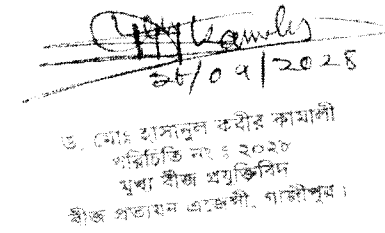 28/09/2025
ড. মোঃ হাসানুল কবীর কামালী
পরিচিতি নং ঃ ২০২৮
মুখ্য বীজ প্রযুক্তিবিদ
বীজ প্রত্যয়ন এজেন্সী, গাজীপুর।